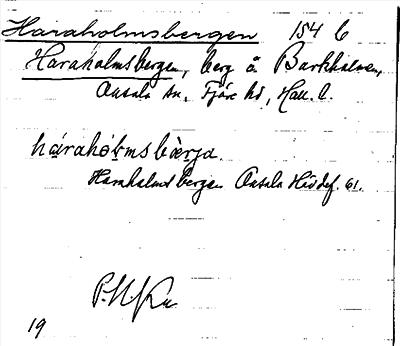 Haraholmsbergen 154 b
Haraholmsbergen, berg å Barkholmen,
Onsala sn, Fjäre hd, Hall. l.
háraho̱lmsbæ̀rja.
Haraholmsbergen Onsala Hdskf. 61.
19